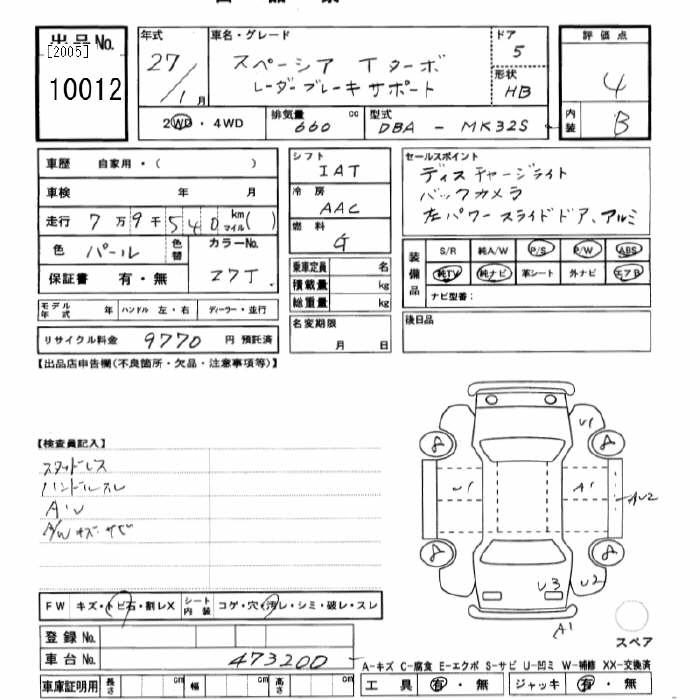 出品No.
[2005]
10012
年式
27/1月
車名・グレード
スペーシア Tターボ
レーダーブレーキサポート
ドア
5
形状
HB
評価点
4
内装
B
2WD・4WD
排気量
660 cc
型式
DBA - MK32S
車歴 自家用・( )
車検 年 月
走行 7万9千540 km マイル( )
色 パール 色替
カラーNo.
Z7T
保証書 有・無
モデル年式 年 ハンドル 左・右 ディーラー・並行
リサイクル料金 9770 円 預託済
シフト
IAT
冷房
AAC
燃料
G
乗車定員 名
積載量 kg
総重量 kg
名変期限
月 日
セールスポイント
ディスチャージライト
バックカメラ
左パワースライドドア、アルミ
装備品
S/R 純A/W P/S P/W ABS
純TV 純ナビ 革シート 外ナビ エアB
ナビ型番:
後日品
【出品店申告欄(不良箇所・欠品・注意事項等)】
【検査員記入】
スタッドレス
ハンドルスレ
A・U
A/Wキズ・サビ
U1
8
8
U1
A1
AU2
8
8
U3
U2
A1
スペア
FW キズ・トビ石・割レX
シート内装 コゲ・穴・汚レ・シミ・破レ・スレ
登録No.
車台No. 473200
車庫証明用 長さ cm 幅 cm 高さ cm
A-キズ C-腐食 E-エクボ S-サビ U-凹ミ W-補修 XX-交換済
工具 有・無 ジャッキ 有・無